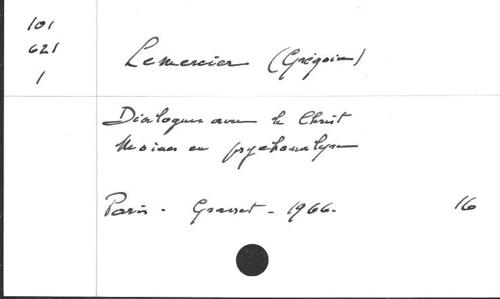 101
621
1
Lemercier (Grégoire)
Dialogues avec le Christ
Moines en psychanalyse
Paris - Grasset - 1966.
16